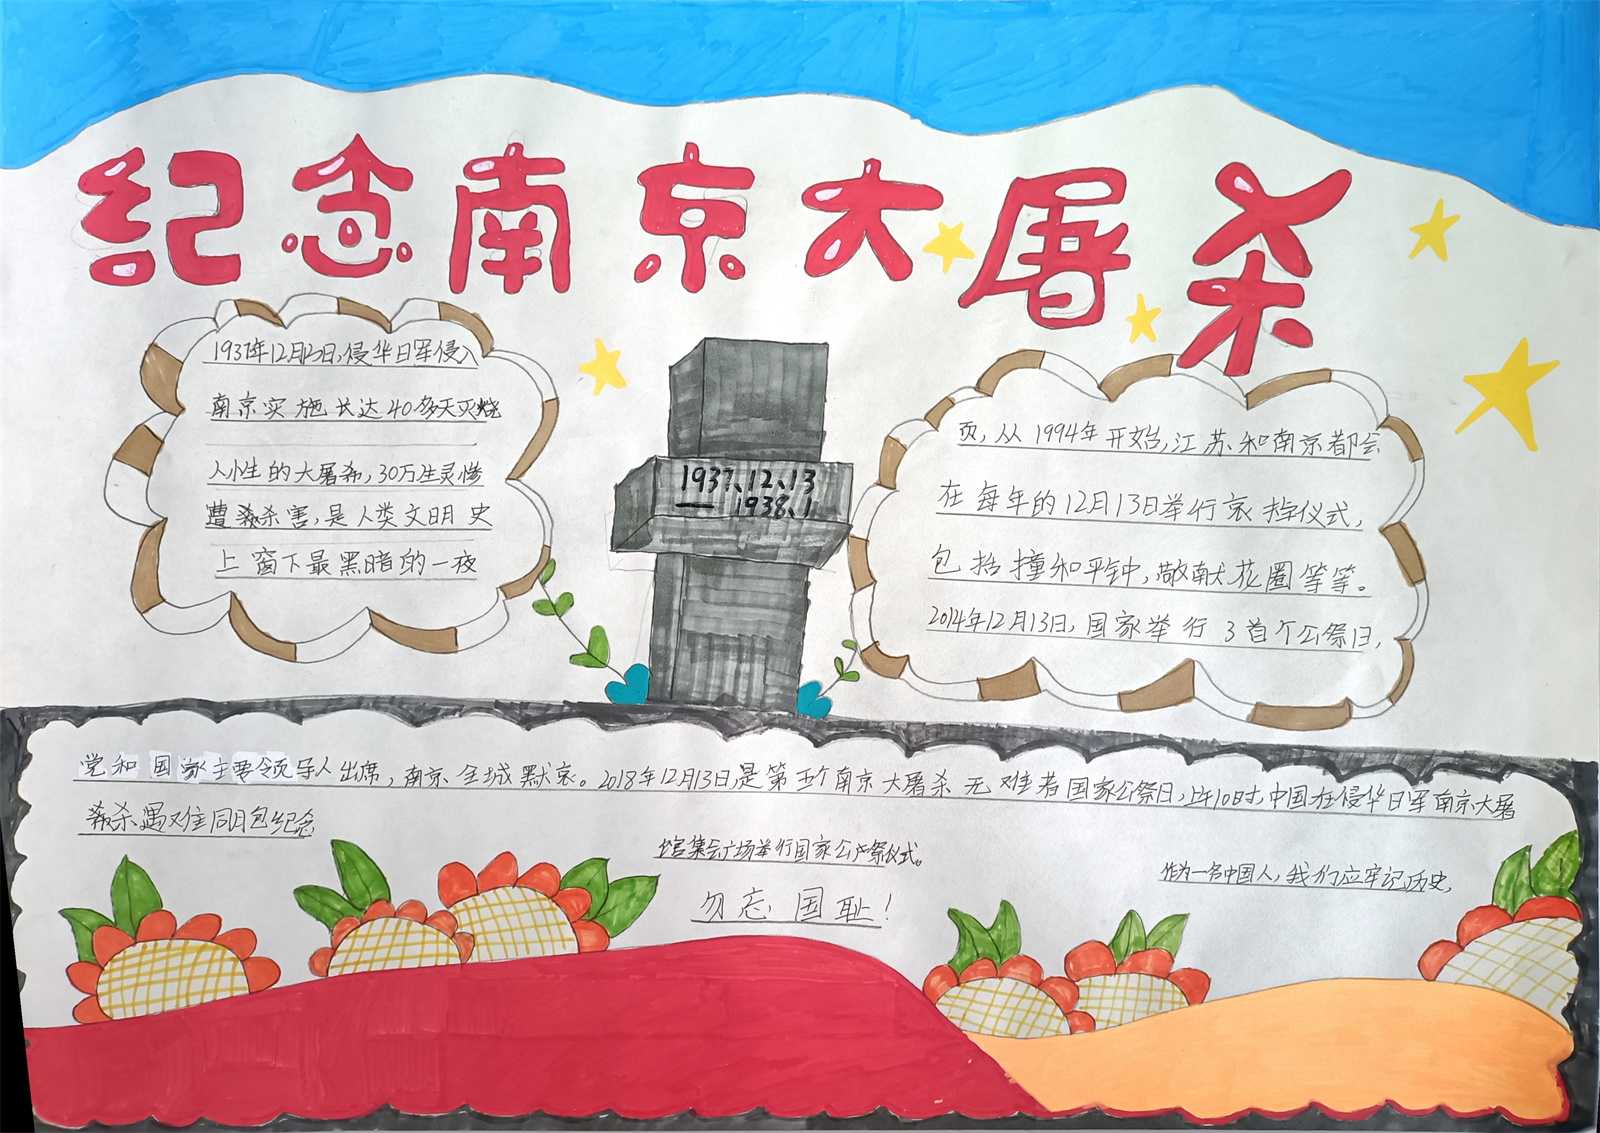 纪念南京大屠杀
1937年12月13日,侵华日军侵入
南京实施长达40多天灭绝
人性的大屠杀,30万生灵惨
遭杀害,是人类文明史
上窗下最黑暗的一夜
1937、12、13
— 1938、1
页,从1994年开始,江苏和南京都会
在每年的12月13日举行哀悼仪式,
包括撞和平钟,敬献花圈等等。
2014年12月13日,国家举行3首个公祭日,
党和国家主要领导人出席,南京全城默哀。2018年12月13日,是第五个南京大屠杀无难者国家公祭日,上午10时,中国在侵华日军南京大屠
杀遇难同胞纪念
馆集会广场举行国家公祭仪式。
勿忘国耻!
作为一名中国人,我们应牢记历史,